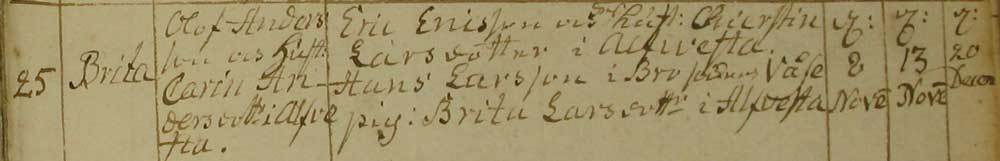 25 Brita
Olof Anders
son och hust:
Carin An-
dersdottr i Alfve
sta.
Eric Ersson och hust: Chierstin
Larsdotter i Alfvesta.
Hans Larsson i Bro Våfe
pig: Brita Larsdottr i Alfvesta
q: 2 Nove
q: 13 Nove
q: 20 Decem